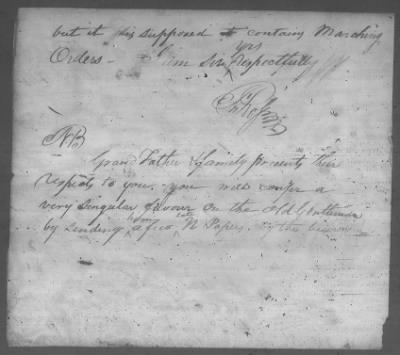 but it is supposed to contain Marching
Orders – I am Sir yrs Respectfully
NB
Grand Father & family presents their
respects to you. you will confer a
very singular favour on the old Gentleman
by sending him a few late N Papers